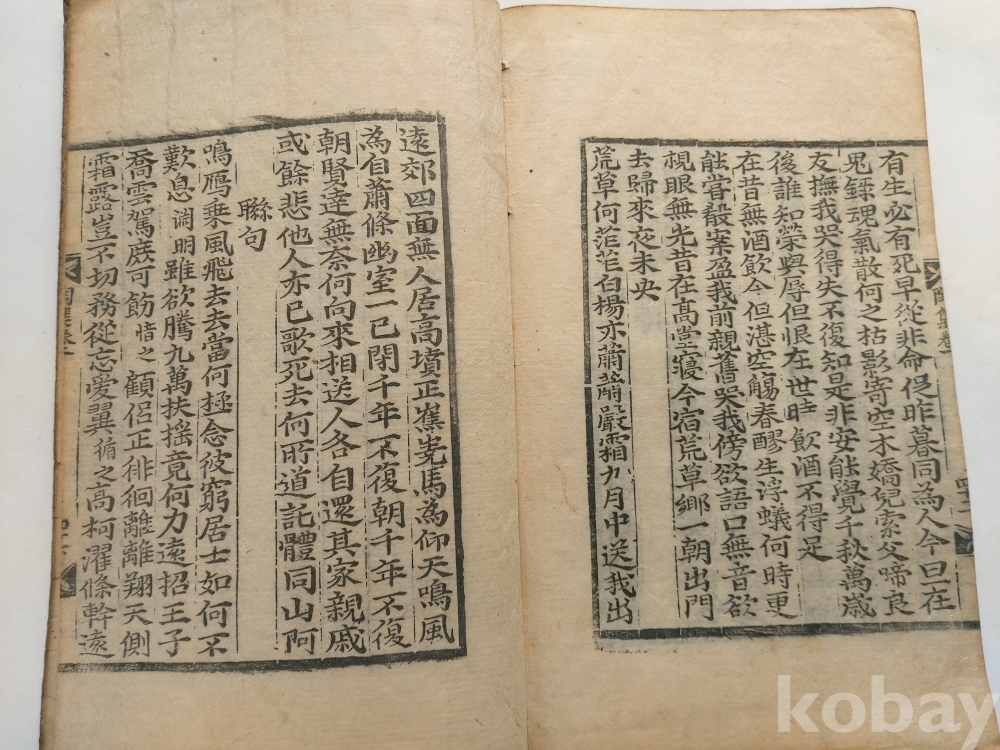 有生必有死早從非命促昨暮同為人今旦在
鬼錄魂氣散何之枯影寄空木嬌兒索父啼良
友撫我哭得失不復知是非安能覺千秋萬歲
後誰知榮與辱但恨在世時飲酒不得足
在昔無酒飲今但湛空觴春醪生浮蟻何時更
能嘗殽案盈我前親舊哭我傍欲語口無音欲
視眼無光昔在髙堂寢今宿荒草鄉一朝出門
去歸來夜未央
荒草何茫茫白楊亦蕭蕭嚴霜九月中送我出
陶集卷一
遠郊四面無人居高墳正嶣嶤馬為仰天鳴風
為自蕭條幽室一已閉千年不復朝千年不復
朝賢達無奈何向來相送人各自還其家親戚
或餘悲他人亦已歌死去何所道託體同山阿
聮句
鳴鴈乗風飛去去當何極念彼窮居士如何不
歎息 淵明 雖欲騰九萬扶揺竟何力遠招王子
喬雲駕庶可飭 愔之 顧侣正徘徊離離翔天側
霜露豈不切務從忘愛翼 循之 高柯濯條幹遠
陶集卷一
kobay